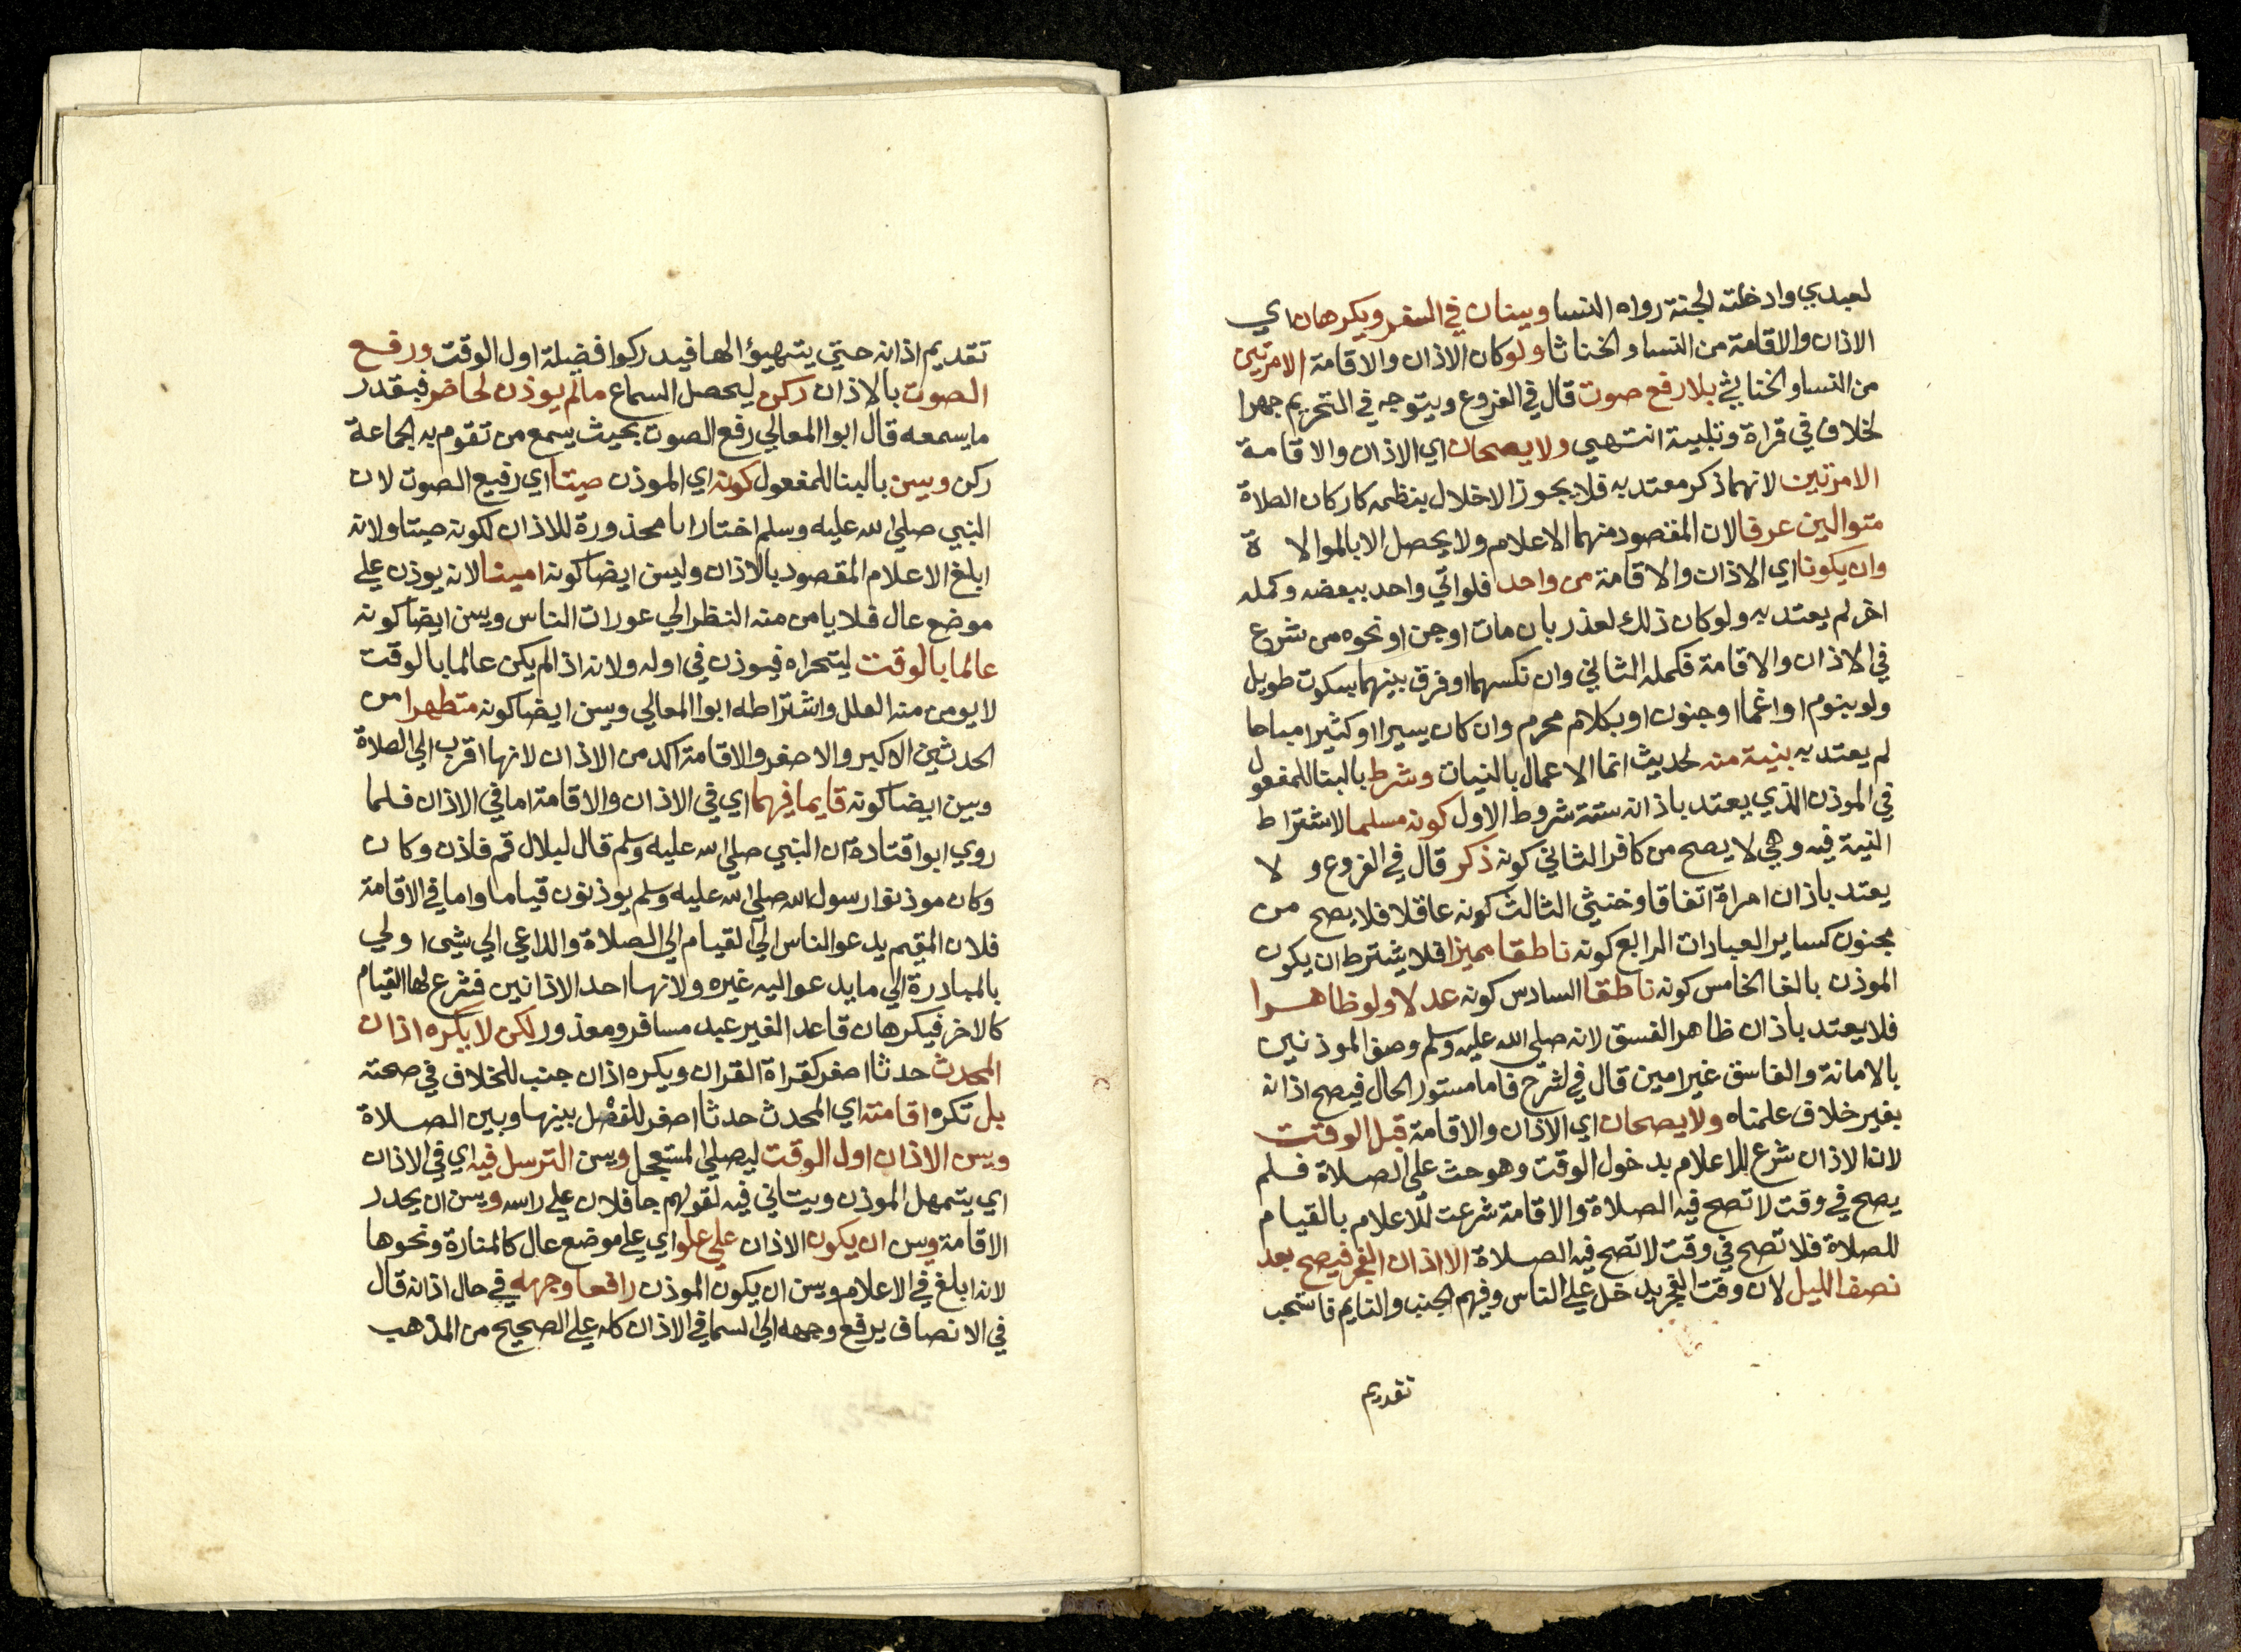 لعبدي وادخلته الجنة رواه النسا ويسنان في السفر ويكرهان اي
الاذان والاقامة من النسا والخناثا ولو كان الاذان والاقامة الامرتين
من النسا والخناثي بلا رفع صوت قال في الفروع ويتوجه في التحريم جهرا
لخلاف في قراة وتلبية انتهي ولا يصحان اي الاذان والاقامة
الامرتبين لانهما ذكر معتد به فلا يجوز الاخلال بنظمه كاركان الصلاة
متوالين عرفا لان المقصود منهما الاعلام ولا يحصل الا بالموالا ة
وان يكونا اي الاذان والاقامة من واحد فلو اتي واحد ببعضه وكمله
اخر لم يعتد به ولو كان ذلك لعذر بان مات او جن او نحوه من شرع
في الاذان والاقامة فكمله الثاني وان نكسهما او فرق بينهما بسكوت طويل
ولو بنوم او اغما او جنون او بكلام محرم وان كان يسيرا او كثيرا مباحا
لم يعتد به بنية منه لحديث انما الاعمال بالنيات وشرط بالبنا للمفعول
في الموذن الذي يعتد باذانه ستة شروط الاول كونه مسلما لاشتراط
النية فيه وهي لا يصح من كافر الثاني كونه ذكر قال في الفروع و لا
يعتد باذان امراة اتفاقا وخنثي الثالث كونه عاقلا فلا يصح من
مجنون كساير العبادات الرابع كونه ناطقا مميزا فلا يشترط ان يكون
الموذن بالغا الخامس كونه ناطقا السادس كونه عدلا ولو ظاهرا
فلا يعتد باذان ظاهر الفسق لانه صلي الله عليه وسلم وصف الموذنين
بالامانة والفاسق غير امين قال في الشرح فاما مستور الحال فيصح اذانه
بغير خلاف علمناه ولا يصحان اي الاذان والاقامة قبل الوقت
لان الاذان شرع للاعلام بدخول الوقت وهو حث علي الصلاة فلم
يصح في وقت لا تصح فيه الصلاة والاقامة شرعت للاعلام بالقيام
للصلاة فلا تصح في وقت لا تصح فيه الصلاة الا اذان الفجر فيصح بعد
نصف الليل لان وقت الفجر يدخل علي الناس وفيهم الجنب والنايم فاستحب
تقديم
تقديم اذانه حتي يتهيؤا لها فيدركوا فضيلة اول الوقت ورفع
الصوت بالاذان ركن ليحصل السماع مالم يوذن لحاضر فبقدر
ما يسمعه قال ابوا المعالي رفع الصوت بحيث يسمع من تقوم به الجماعة
ركن ويسن بالبنا للمفعول كونه اي الموذن صيتا اي رفيع الصوت لان
النبي صلي الله عليه وسلم اختار ابا محذورة للاذان لكونه صيتا ولانه
ابلغ الاعلام المقصود بالاذان وليسن ايضا كونه امينا لانه يوذن علي
موضع عال فلا يامن منه النظر الي عورات الناس ويسن ايضا كونه
عالما بالوقت ليتحراه فيوذن في اوله ولانه اذا لم يكن عالما بالوقت
لا يومن منه الغلل واشتراطه ابوا المعالي ويسن ايضا كونه متطهرا من
الحدثين الاكبر والاصغر والاقامة اكد من الاذان لانها اقرب الي الصلاة
ويسن ايضا كونه قايما فيهما اي في الاذان والاقامة اما في الاذان فلما
روي ابوا قتادة ان النبي صلي الله عليه وسلم قال لبلال قم فاذن وكان
وكان موذنوا رسول الله صلي الله عليه وسلم يوذنون قياما واما في الاقامة
فلان المقيم يدعوا الناس الي القيام الي الصلاة والداعي الي شي اولي
بالمبادرة الي ما يدعوا اليه غيره ولانها احد الاذانين فشرع لها القيام
كالاخر فيكرهان قاعد الغير عبد مسافر ومعذور لكن لا يكره اذان
المحدث حدثا اصغر كقراة القران ويكره اذان جنب للخلاف في صحته
بل تكره اقامته اي المحدث حدثا اصغر للفصل بينها وبين الصلاة
ويسن الاذان اول الوقت ليصلي المستعجل ويسن الترسل فيه اي في الاذان
اي يتمهل الموذن ويتاني فيه لقولهم جا فلان علي راسه ويسن ان يحدر
الاقامة ويسن ان يكون الاذان علي علو اي علي موضع عال كالمنارة ونحوها
لانه ابلغ في الاعلام ويسن ان يكون الموذن رافعا وجهه في حال اذانه قال
في الانصاف يرفع وجهه الي السما في الاذان كله علي الصحيح من المذهب